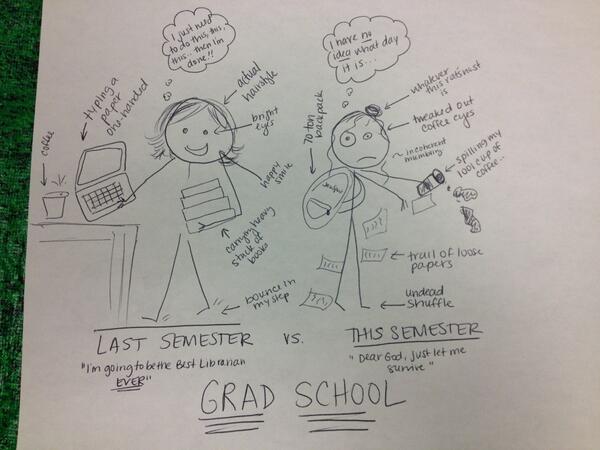 I just need
to do this, this,
this.. then I'm
done!!
actual
hairstyle
bright
eyes
happy
smile
typing a
paper
one-handed
coffee
carrying heavy
stack of
books
bounce in
my step
LAST SEMESTER
"I'm going to be the Best Librarian
EVER"
vs.
I have no
idea what day
it is...
whatever
this rat's nest
is
tweaked out
coffee eyes
~ incoherent
mumbling
spilling my
1001 cup of
coffee..
70 ton
backpack
trail of loose
papers
undead
shuffle
THIS SEMESTER
"Dear God, just let me
survive"
GRAD SCHOOL